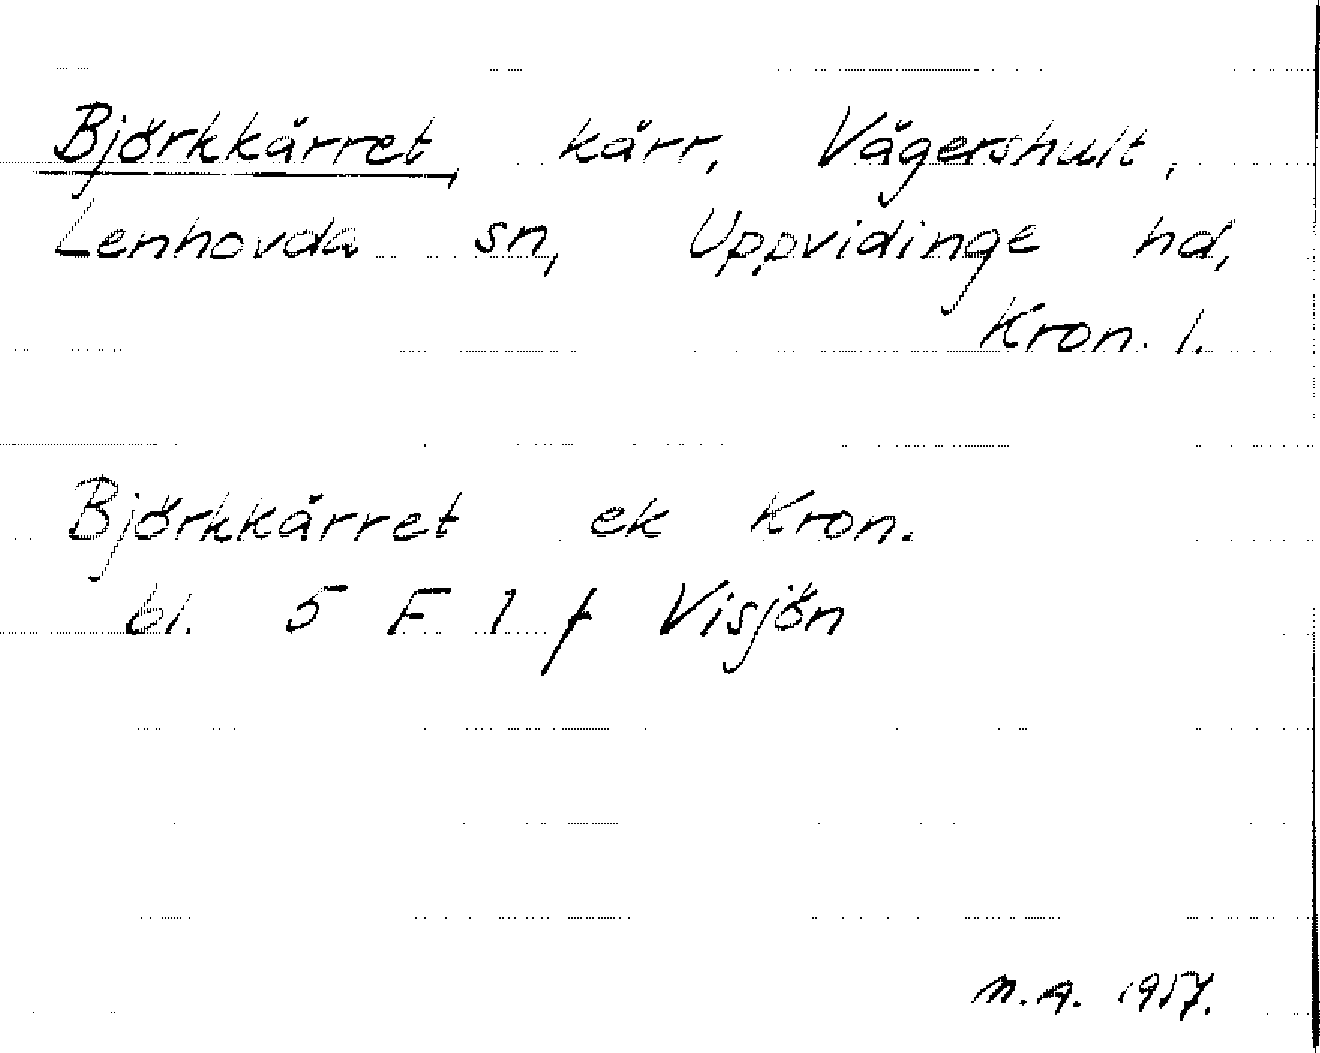 Björkkärret, kärr, Vägershult,
Lenhovda sn, Uppvidinge hd,
Kron. l.
Björkkärret ek Kron.
bl. 5 F 1 f Visjön
M.A. 1957.